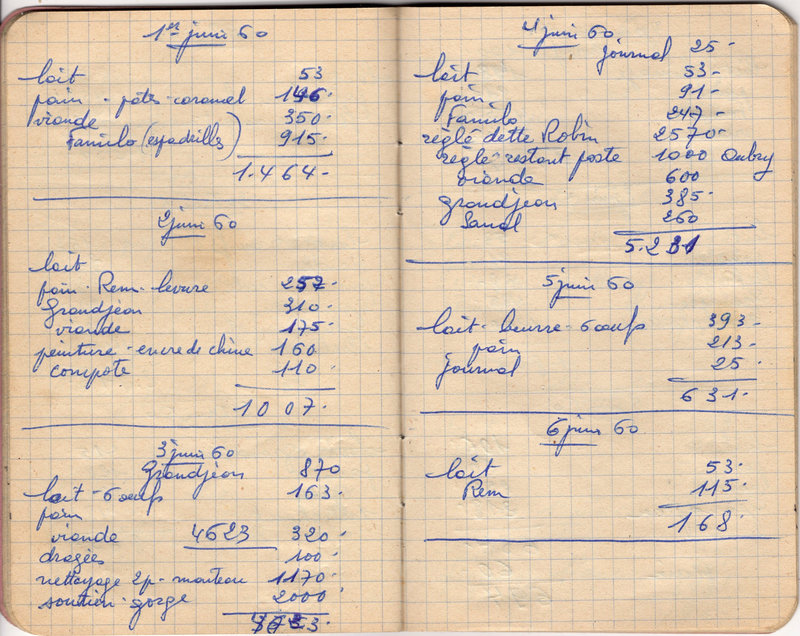 1er juin 60
lait 53
pain - pâtes - caramel 146
viande 350-
Familo (espadrilles) 915-
1.464-
2 juin 60
lait
pain - Rem - levure 257-
Grandjean 310-
viande 175-
peinture - encre de chine 160
compote 110-
1007-
3 juin 60
Grandjean 870
lait - 6 oeufs 163-
pain
viande 4623 320-
dragées 100-
nettoyage 2p - manteau 1170-
soutien-gorge 2000-
4 juin 60
journal 25-
lait 53-
pain 91-
Familo 247-
réglé dette Robin 2570-
réglé restant poste 1000 Aubry
viande 600
grandjean 385-
260
5.231
5 juin 60
lait - beurre - 6 oeufs 393-
pain 213-
journal 25-
631-
6 juin 60
lait 53-
Rem 115-
168-